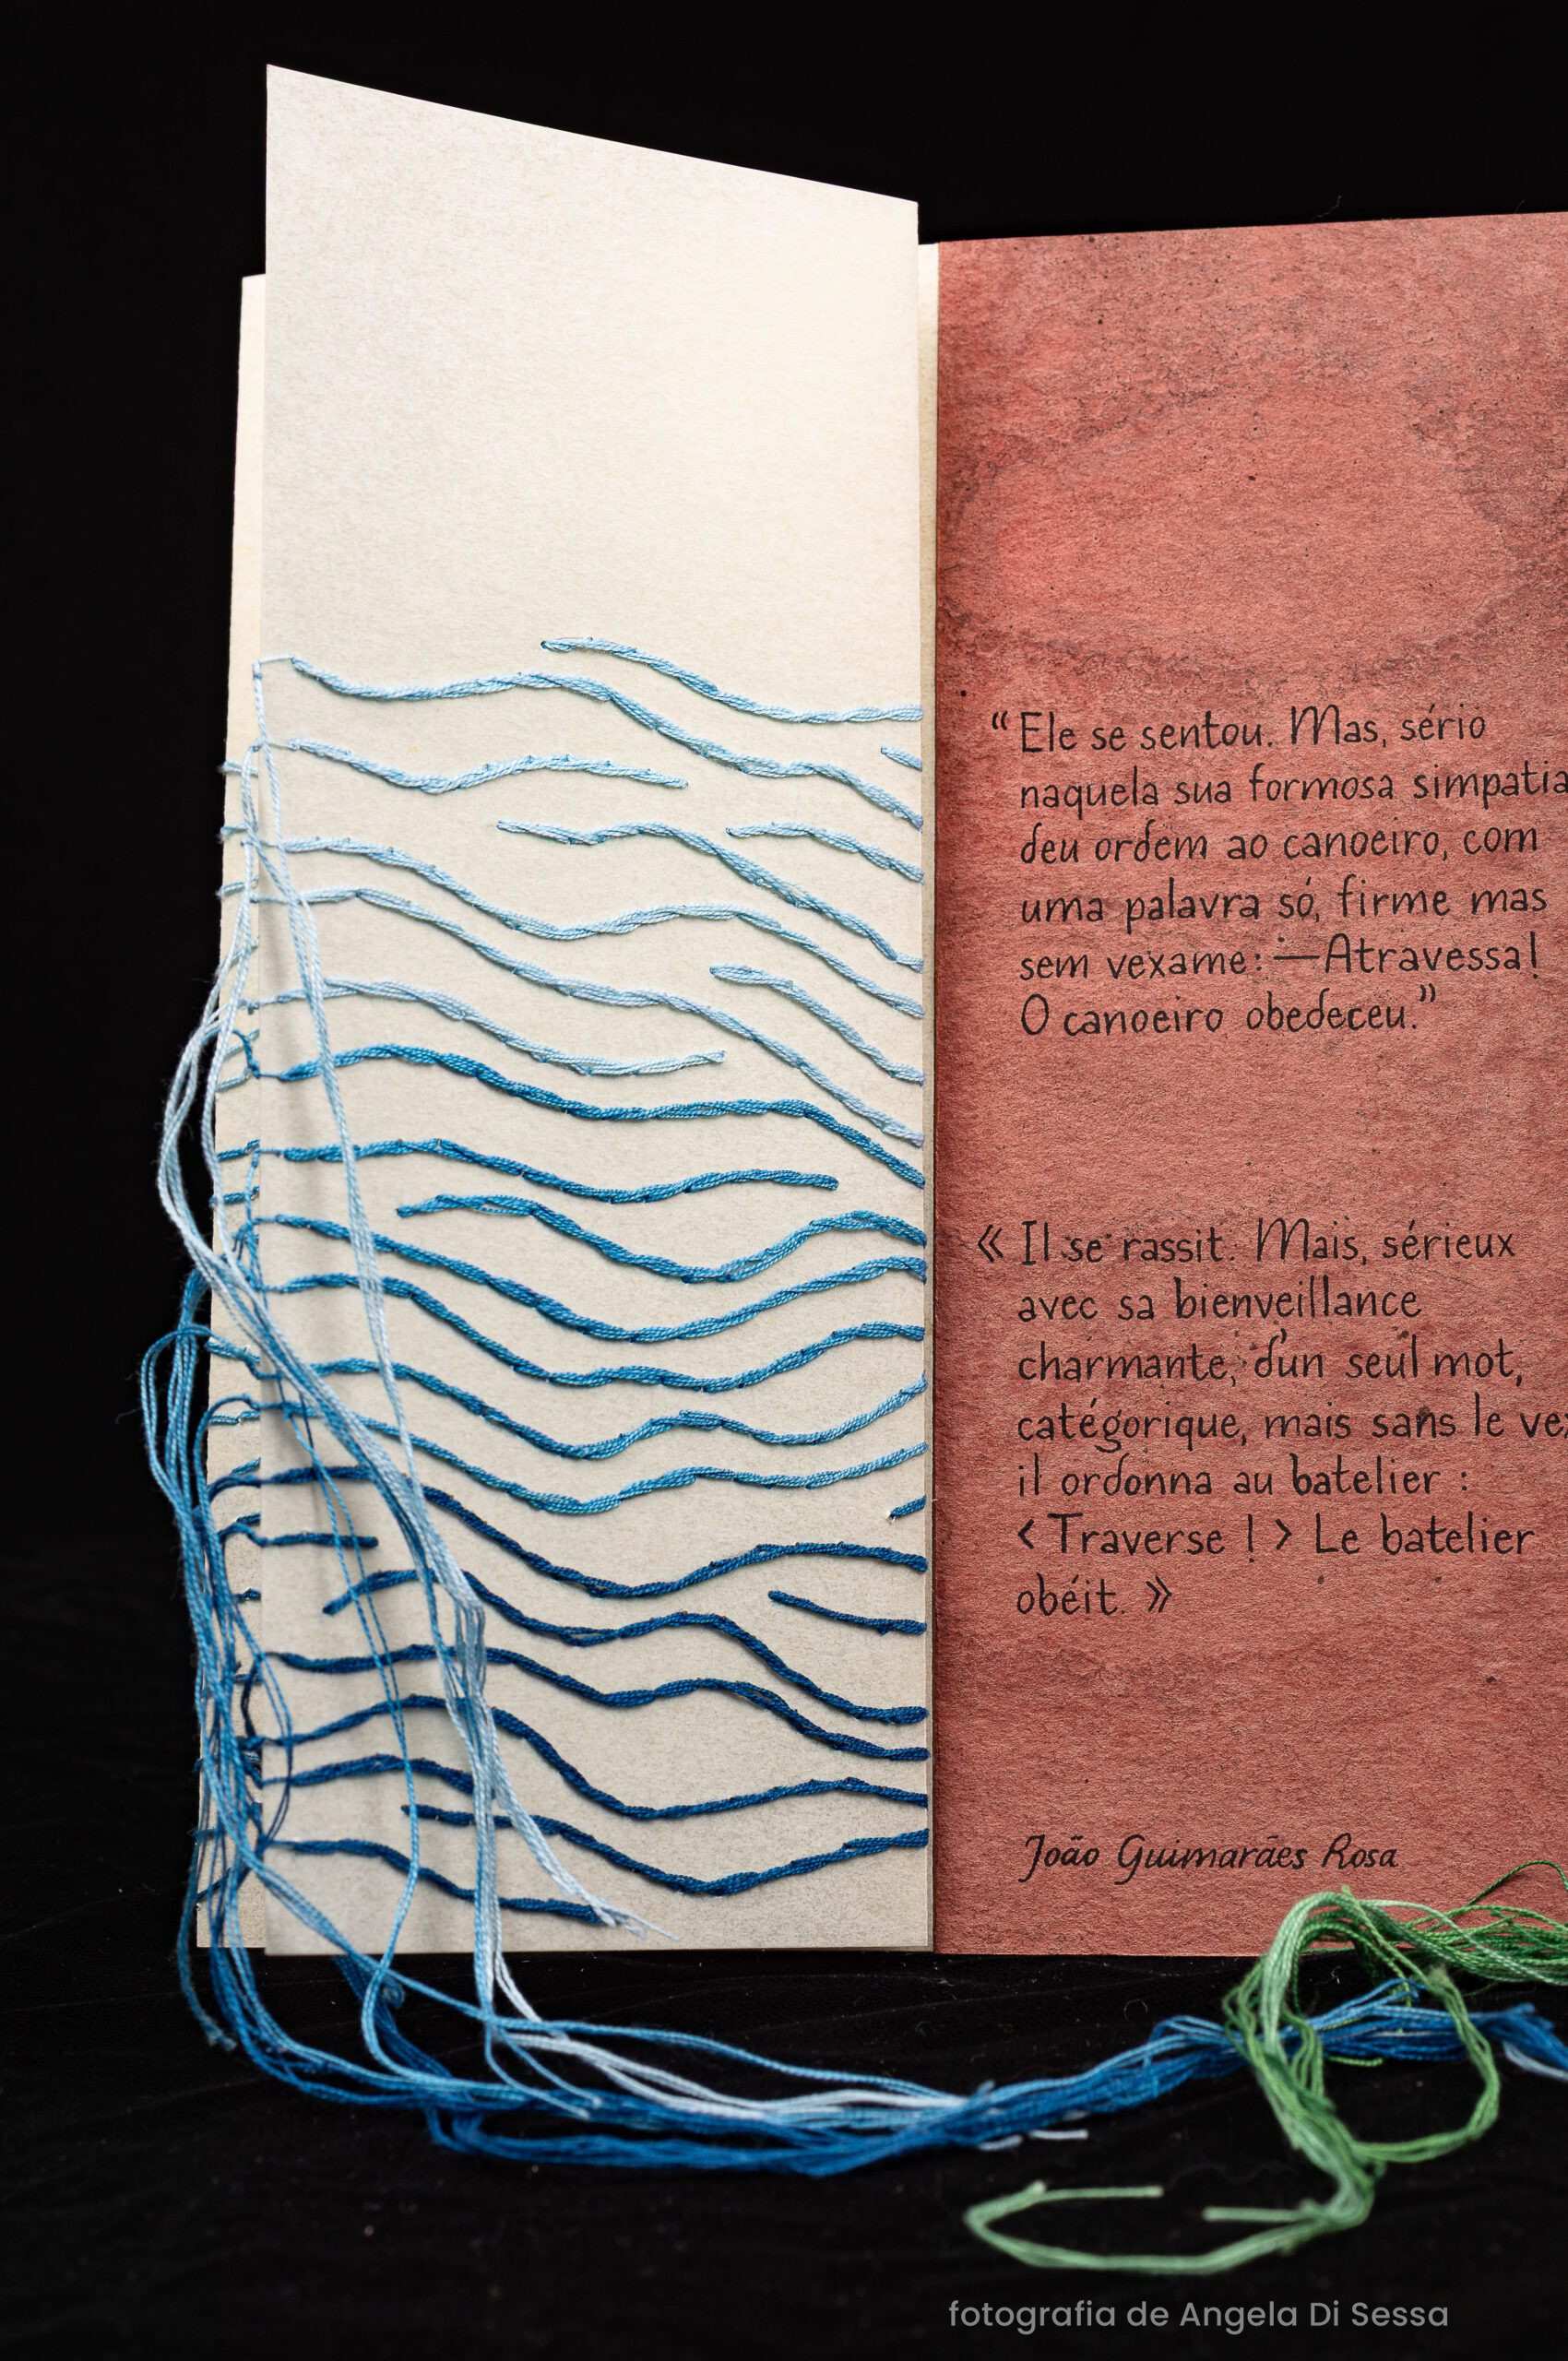 “Ele se sentou. Mas, sério
naquela sua formosa simpatia
deu ordem ao canoeiro, com
uma palavra só, firme mas
sem vexame: —Atravessa!
O canoeiro obedeceu.”
« Il se rassit. Mais, sérieux
avec sa bienveillance
charmante, d'un seul mot,
catégorique, mais sans le
il ordonna au batelier :
< Traverse ! > Le batelier
obéit. »
João Guimarães Rosa
fotografia de Angela Di Sessa